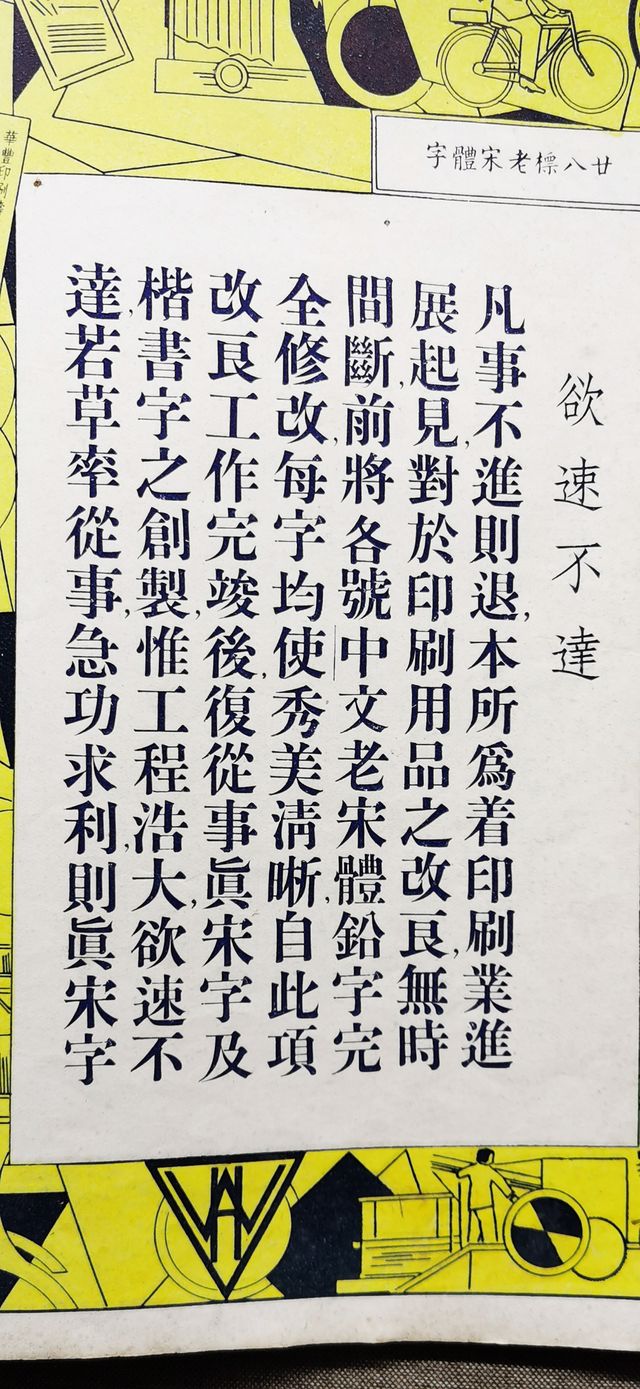 廿八標老宋體字
欲速不達
凡事不進則退,本所爲着印刷業進
展起見,對於印刷用品之改良,無時
間斷,前將各號中文老宋體鉛字完
全修改,每字均使秀美清晰,自此項
改良工作完竣後,復從事眞宋字及
楷書字之創製,惟工程浩大,欲速不
達,若草率從事,急功求利,則眞宋字
華豐印刷